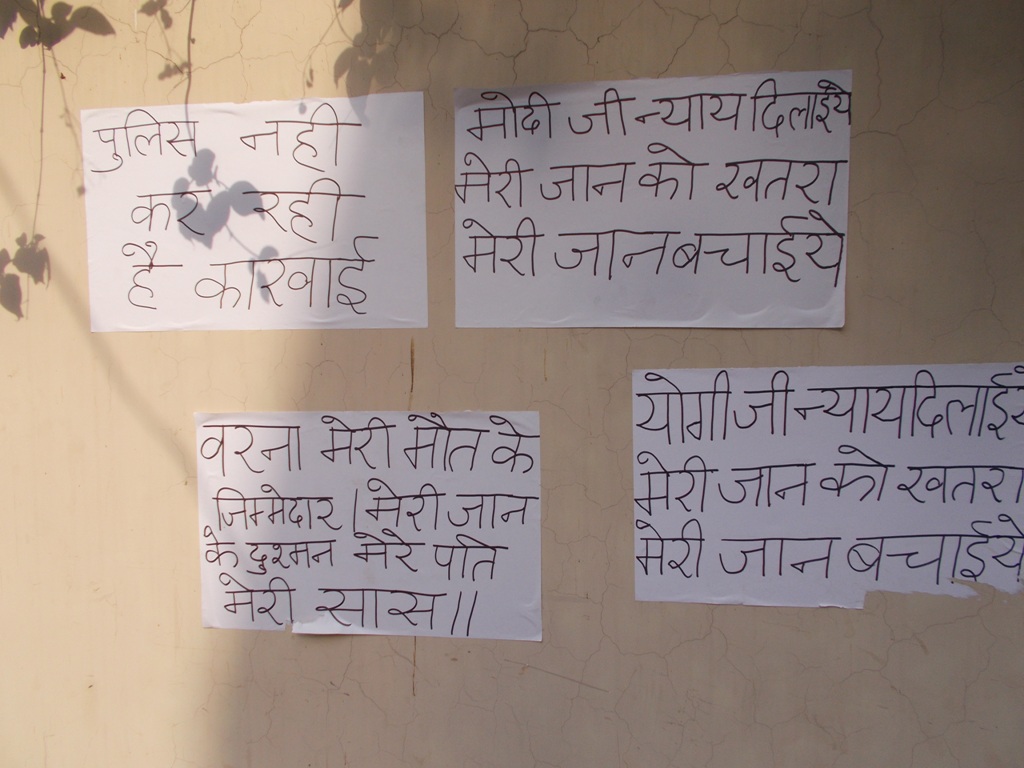 पुलिस नही
कर रही
है कारवाई
मोदी जी न्याय दिलाईये
मेरी जान को खतरा
मेरी जान बचाईये
वरना मेरी मौत के
जिम्मेदार | मेरी जान
के दुश्मन मेरे पति
मेरी सास ||
योगी जी न्याय दिलाईये
मेरी जान को खतरा
मेरी जान बचाईये